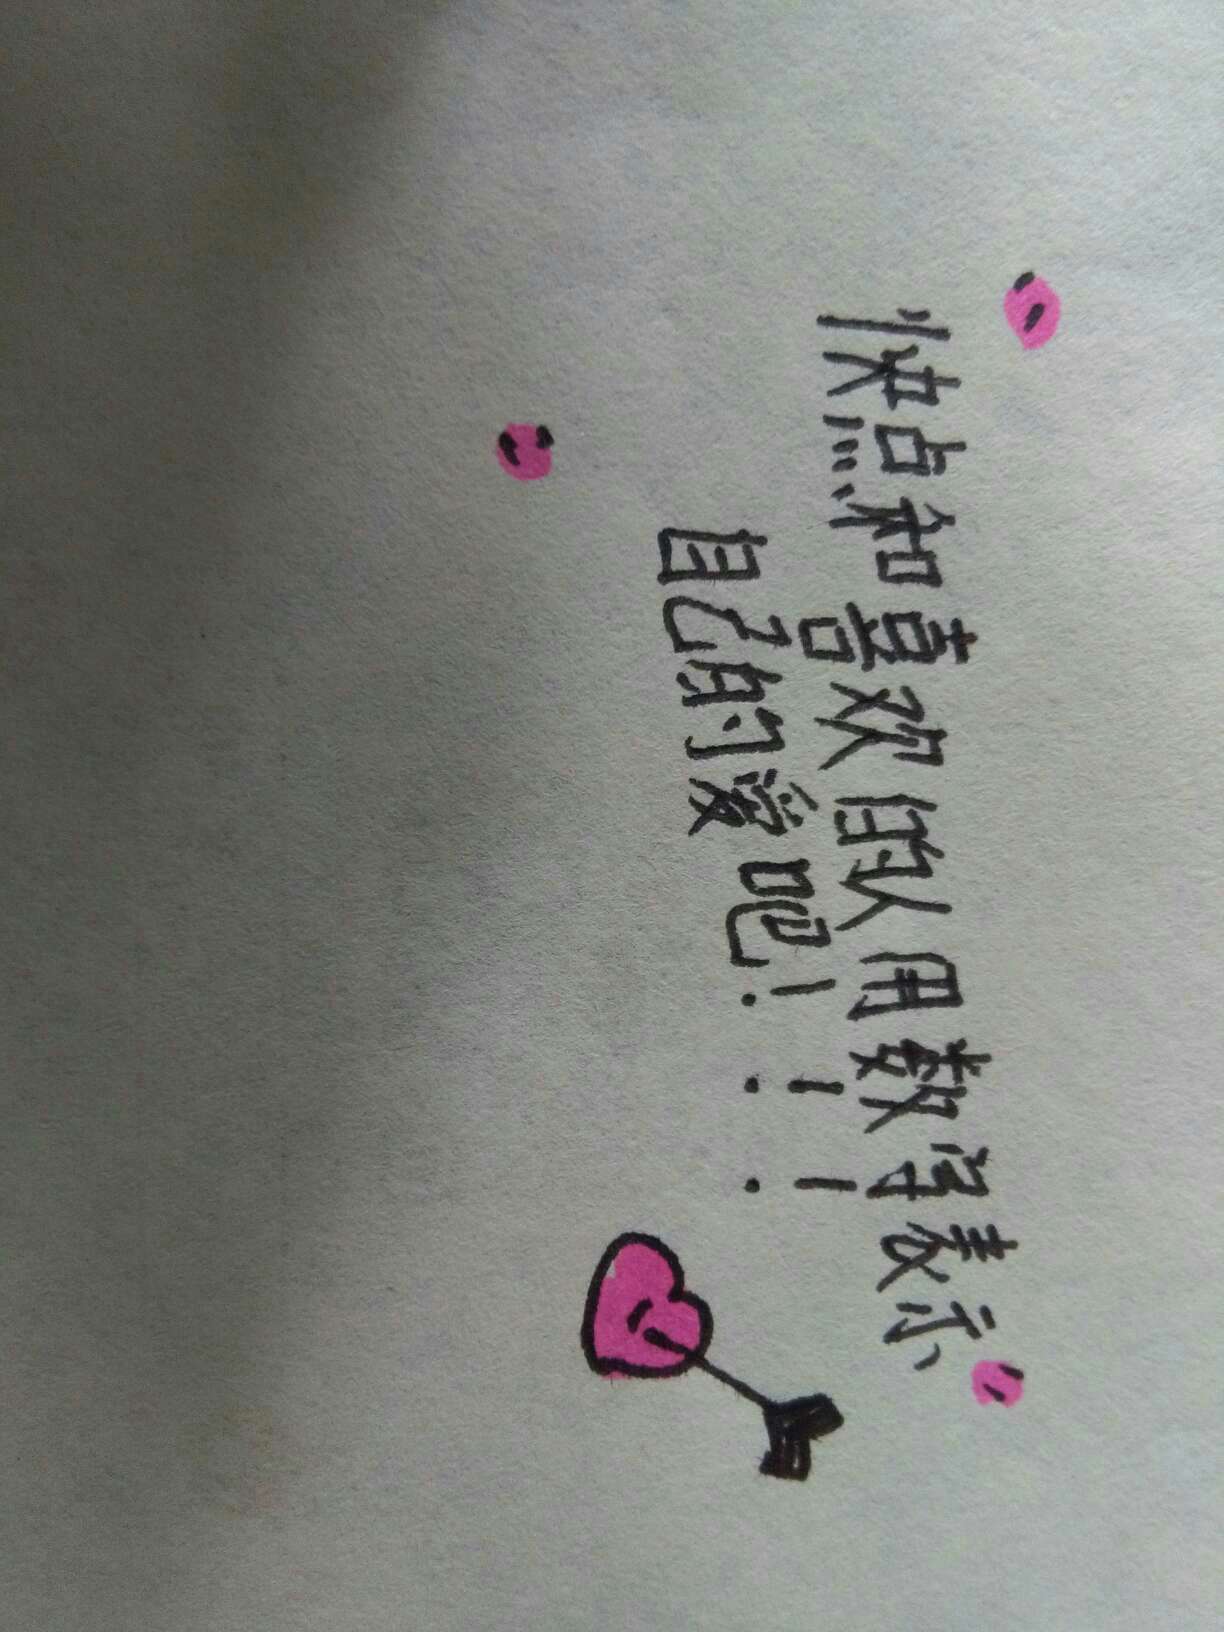 快点和喜欢的人用数字表示
自己的爱吧!!!